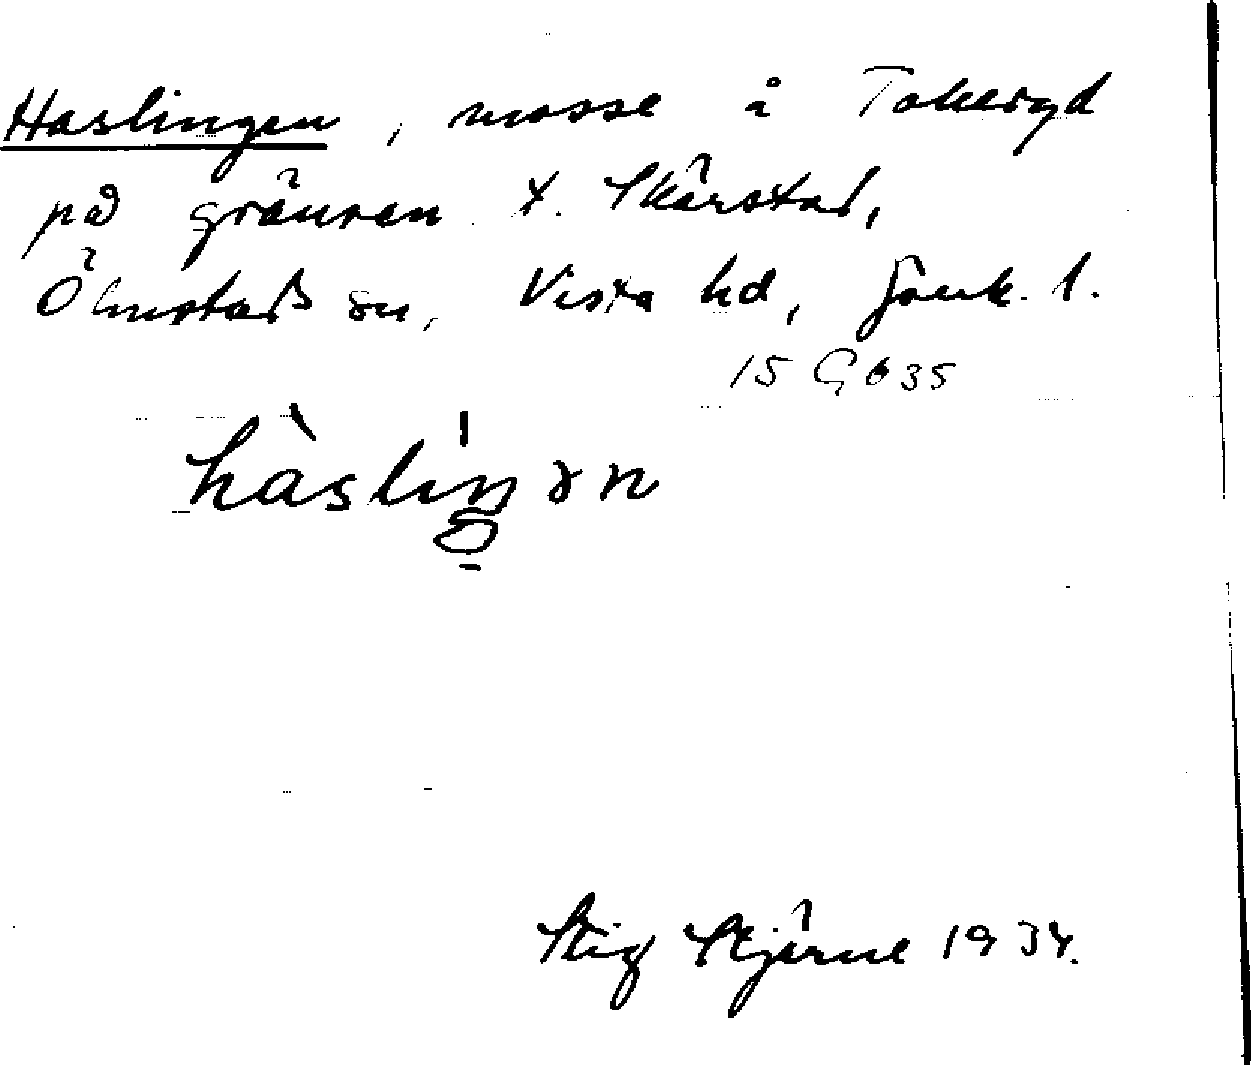 Haslingen, mosse å Tokeryd
på gränsen t. Skärstad,
Ölmstads sn, Vista hd, Jönk. l.
15 G 6 35
hàslíŋən
Stig Stjärne 1934.